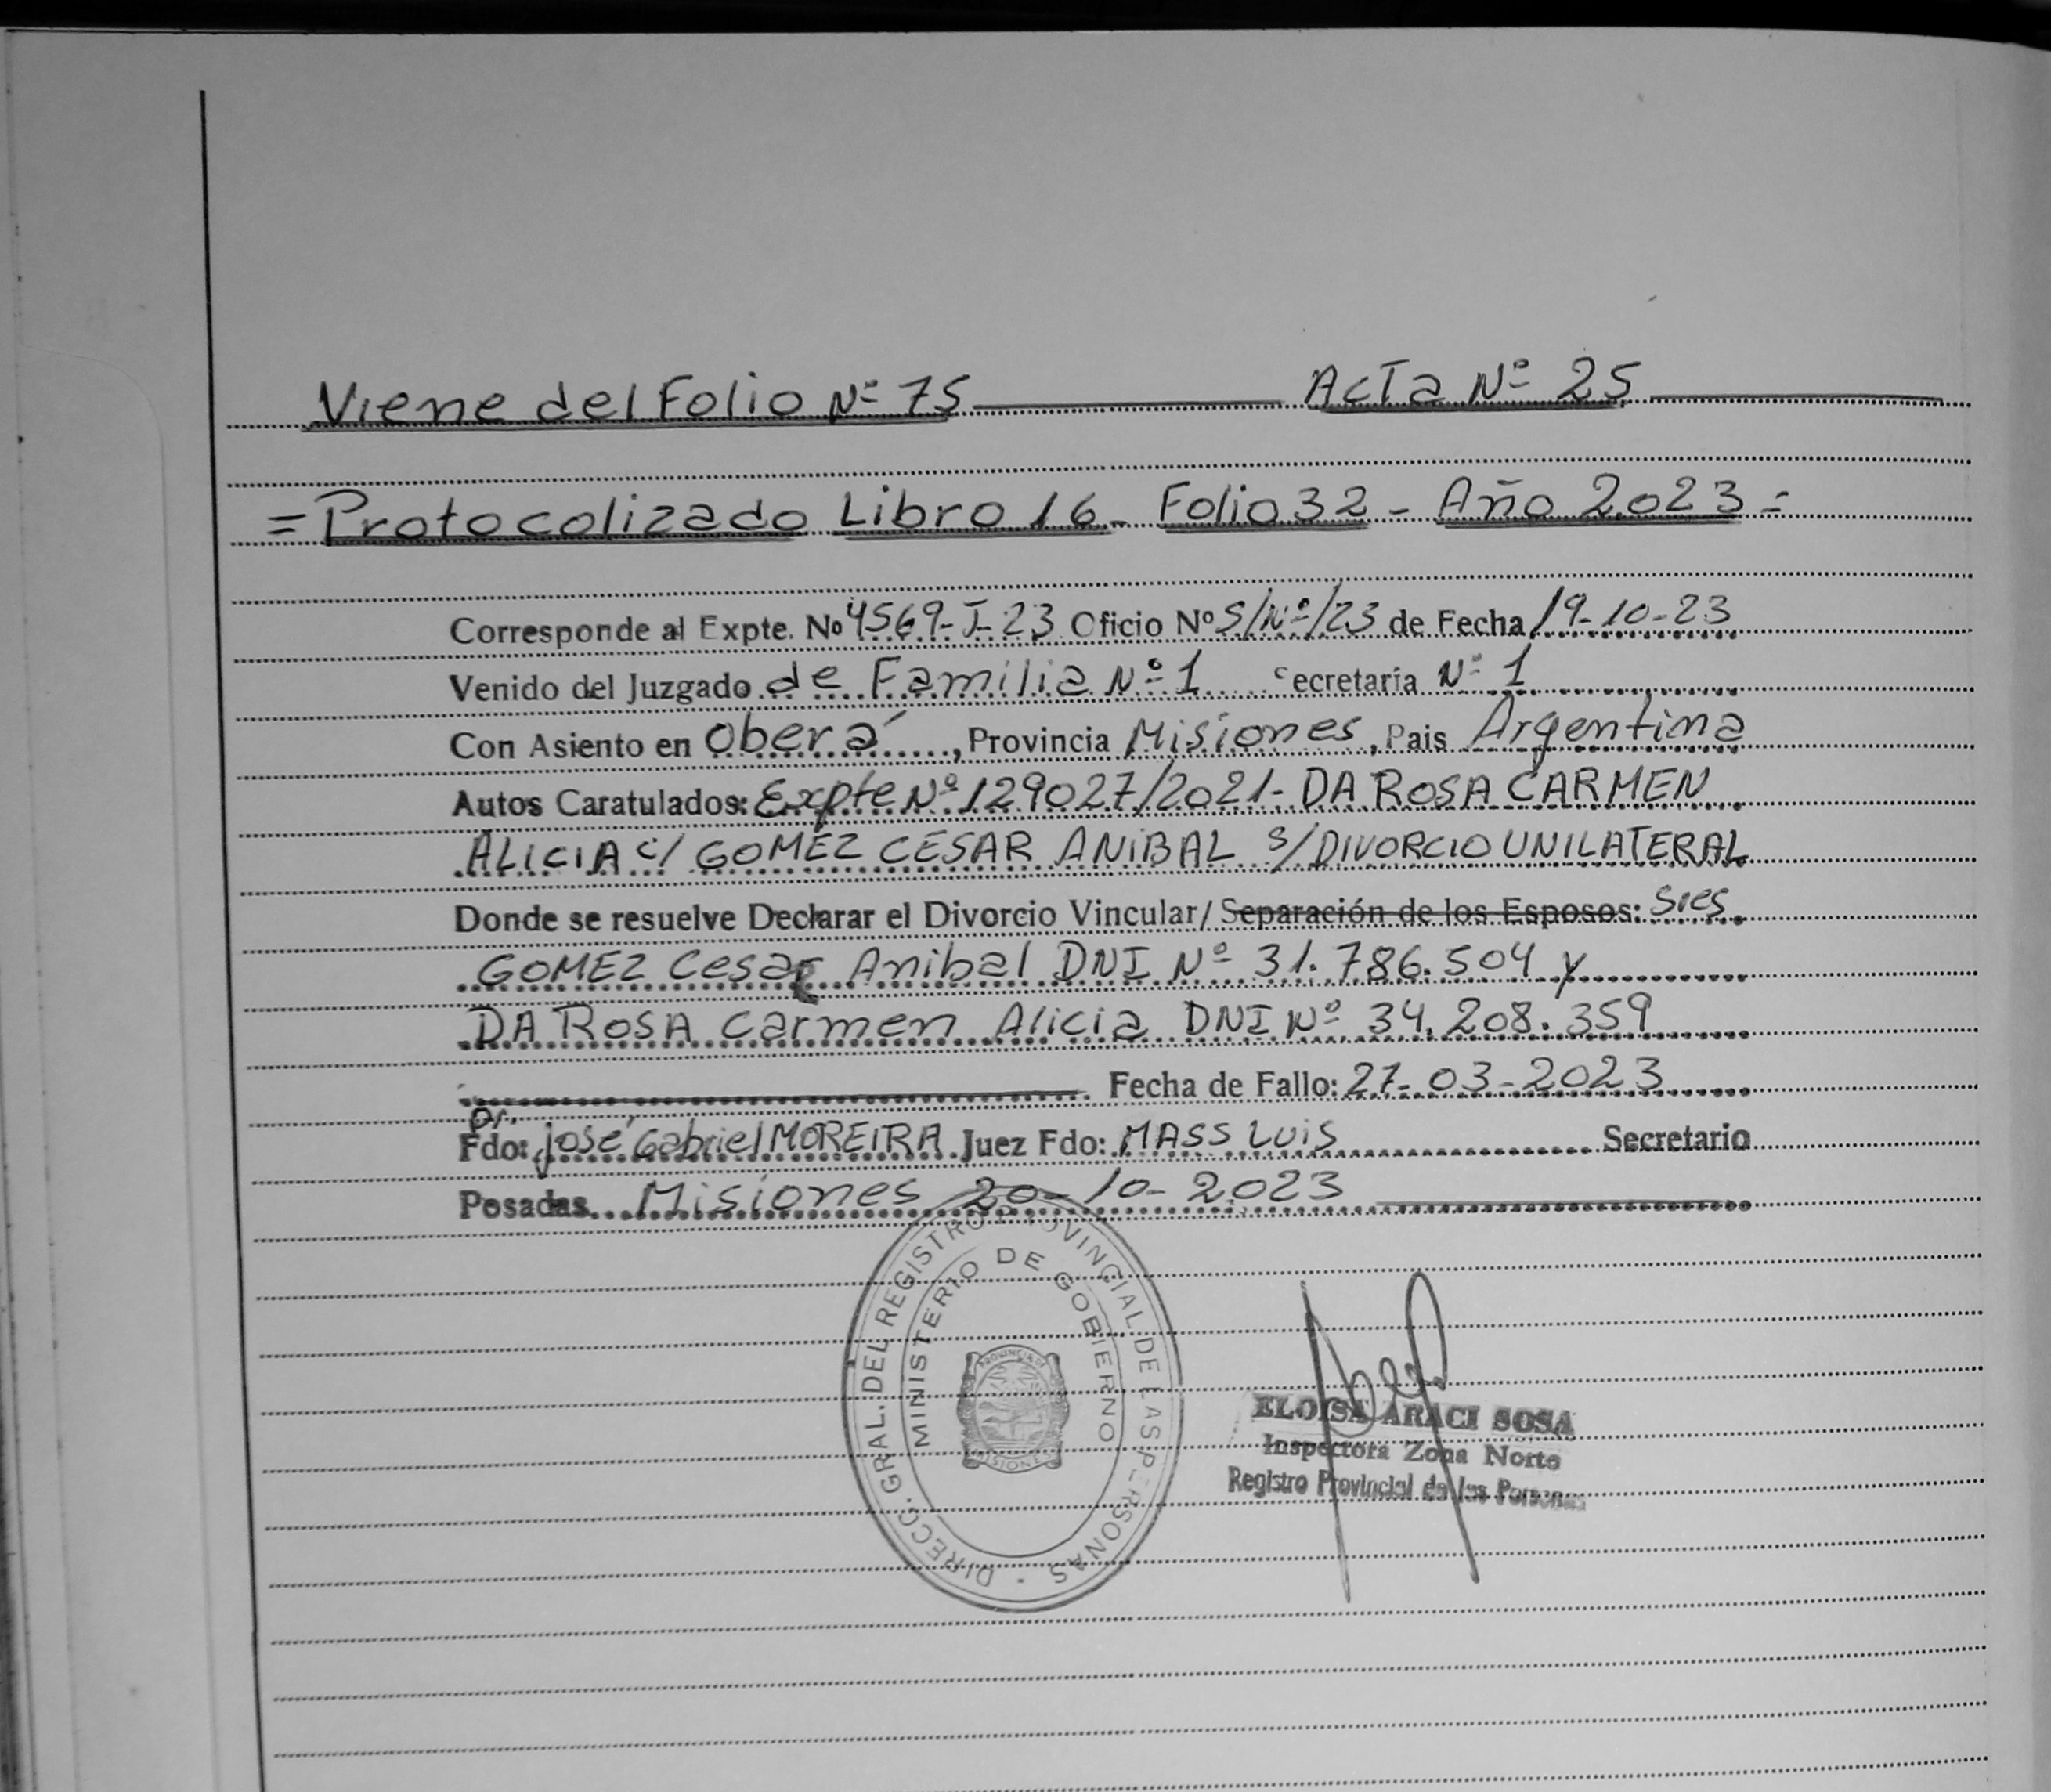 Viene del Folio Nº 75 Acta Nº 25
= Protocolizado Libro 16 - Folio 32 - Año 2.023 =
Corresponde al Expte. Nº 4569-J-23 Oficio Nº S/Nº/23 de Fecha 19-10-23
Venido del Juzgado de Familia Nº 1 Secretaria Nº 1
Con Asiento en Oberá, Provincia Misiones, Pais Argentina
Autos Caratulados: Expte Nº 129027/2021- DA ROSA CARMEN
ALICIA C/ GOMEZ CESAR ANIBAL S/ DIVORCIO UNILATERAL
Donde se resuelve Declarar el Divorcio Vincular/ Separación de los Esposos: Sres.
GOMEZ Cesar Anibal DNI Nº 31.786.504 y
DA ROSA Carmen Alicia DNI Nº 34.208.359
Fecha de Fallo: 27-03-2023
Dr.
Fdo: José Gabriel MOREIRA Juez Fdo: MASS LUIS Secretario
Posadas. Misiones 20-10-2023
DIRECC. GRAL. DEL REGISTRO PROVINCIAL DE LAS PERSONAS
MINISTERIO DE GOBIERNO
PROVINCIA DE
MISIONES
ELOISA ARACI SOSA
Inspectora Zona Norte
Registro Provincial de las Personas